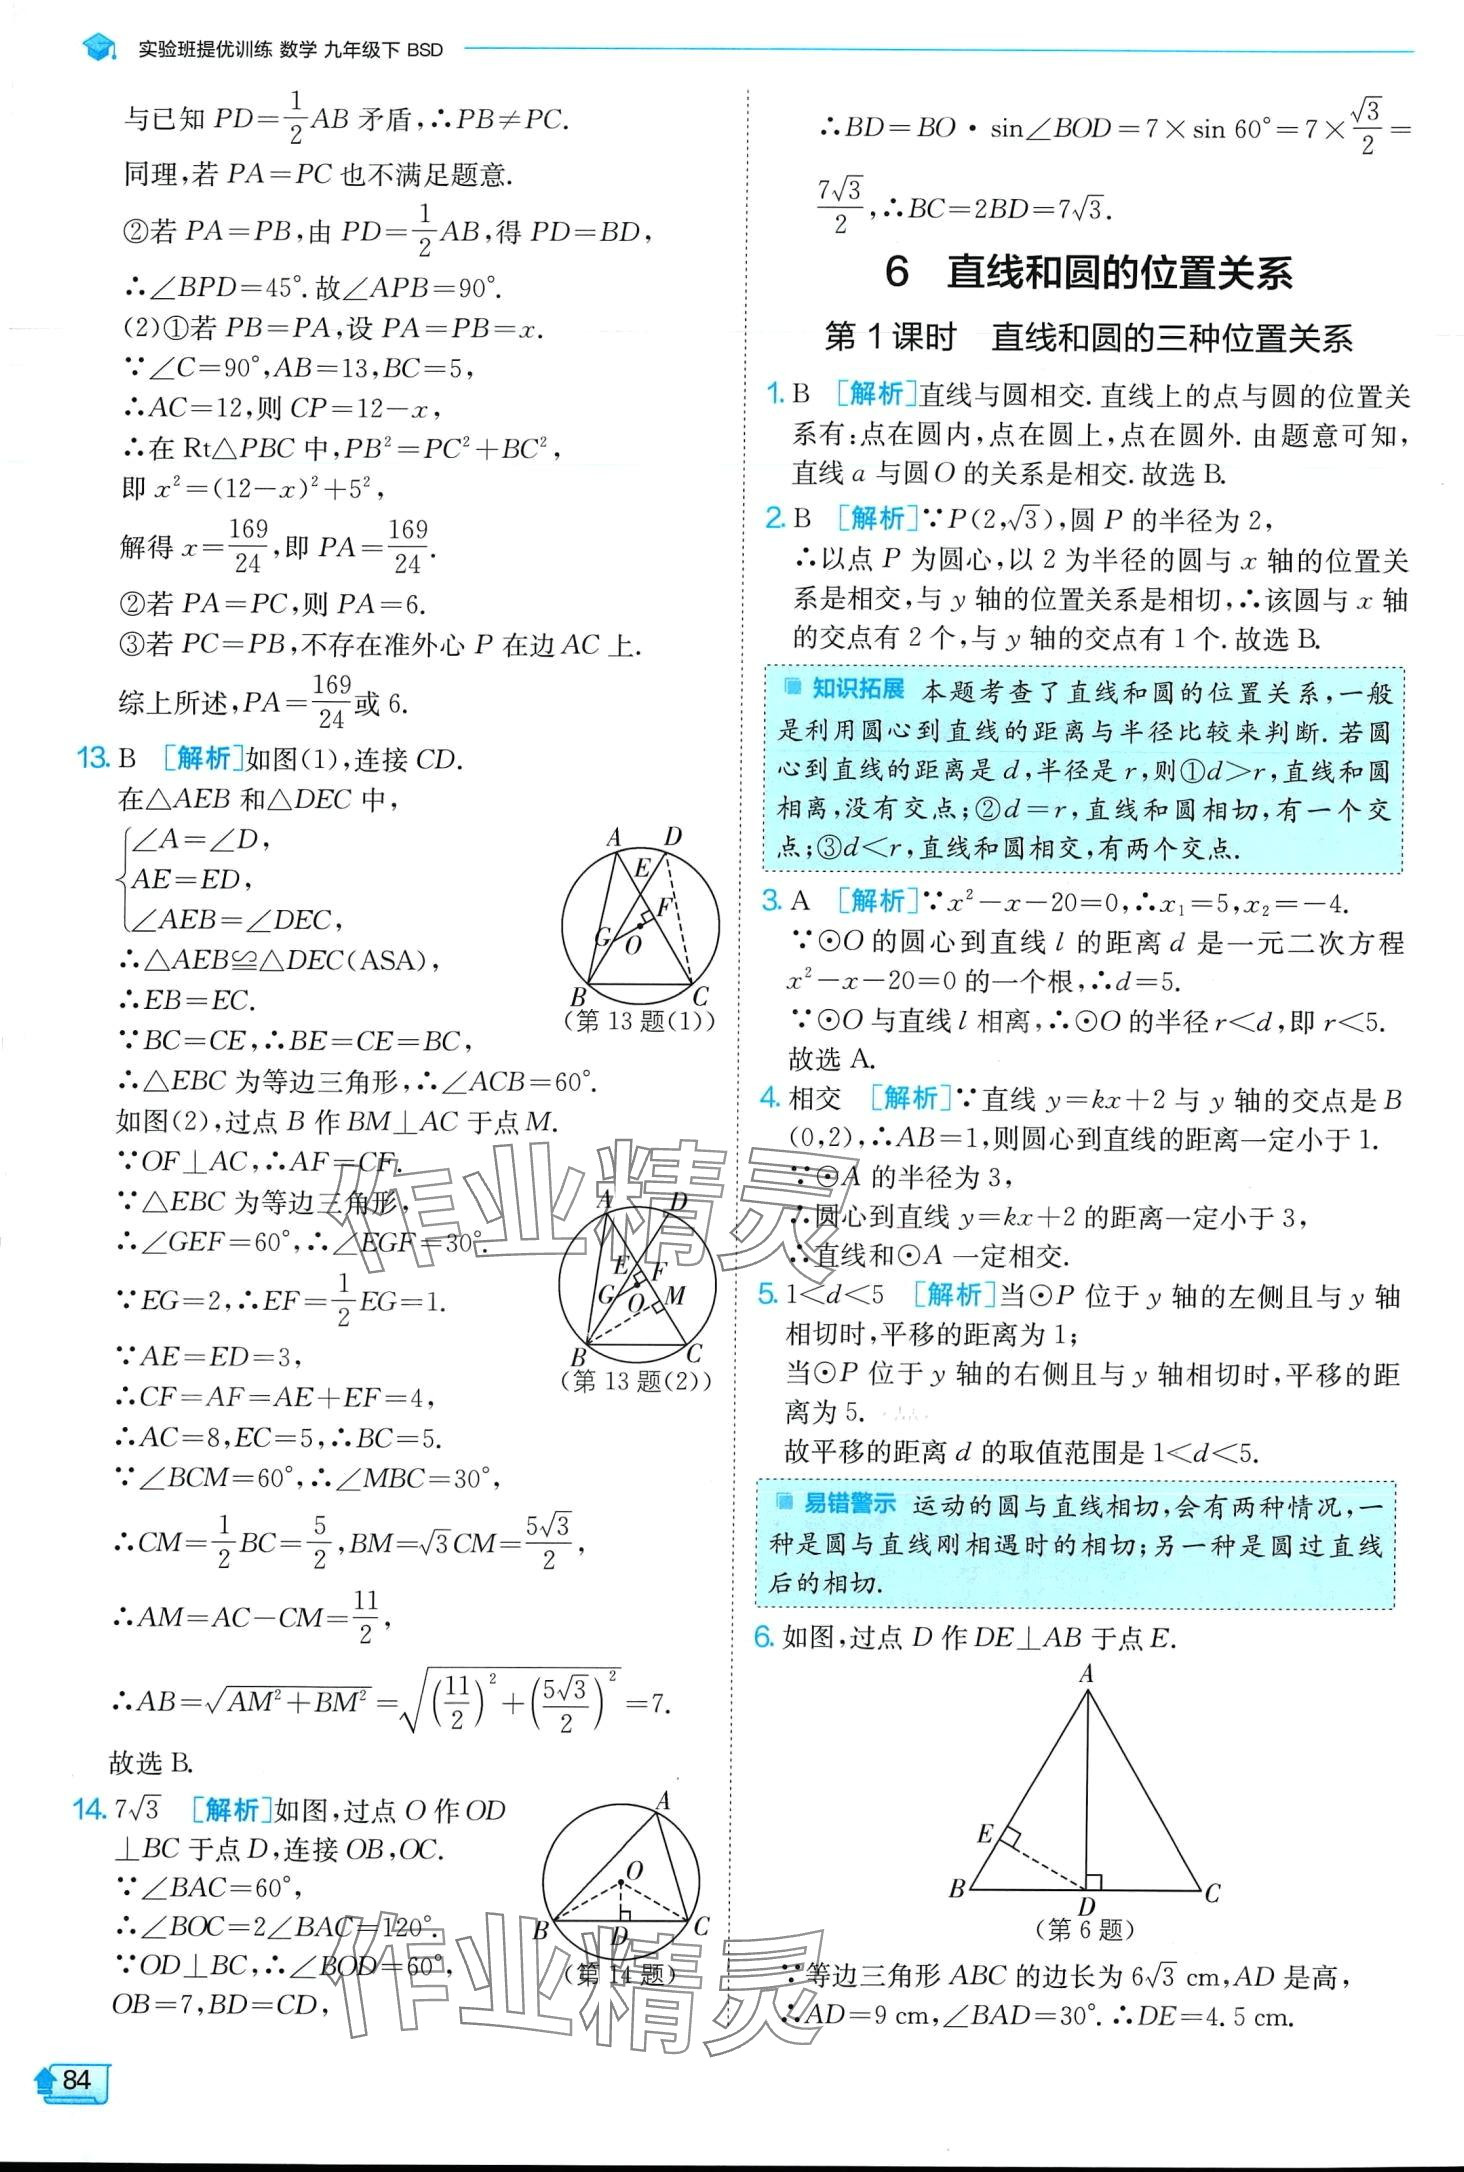 实验班提优训练 数学 九年级下 BSD
与已知 PD=1/2AB 矛盾,∴PB≠PC.
同理,若 PA=PC 也不满足题意.
②若 PA=PB,由 PD=1/2AB,得 PD=BD,
∴∠BPD=45°.故∠APB=90°.
(2)①若 PB=PA,设 PA=PB=x.
∵∠C=90°,AB=13,BC=5,
∴AC=12,则 CP=12-x,
∴在 Rt△PBC 中,PB²=PC²+BC²,
即 x²=(12-x)²+5²,
解得 x=169/24,即 PA=169/24.
②若 PA=PC,则 PA=6.
③若 PC=PB,不存在准外心 P 在边 AC 上.
综上所述,PA=169/24或 6.
13. B [解析]如图(1),连接 CD.
在△AEB 和△DEC 中,
{∠A=∠D,
AE=ED,
∠AEB=∠DEC,
∴△AEB≌△DEC(ASA),
∴EB=EC.
∵BC=CE,∴BE=CE=BC,
∴△EBC 为等边三角形,∴∠ACB=60°.
如图(2),过点 B 作 BM⊥AC 于点 M.
∵OF⊥AC,∴AF=CF.
∵△EBC 为等边三角形,
∴∠GEF=60°,∴∠EGF=30°.
∵EG=2,∴EF=1/2EG=1.
∵AE=ED=3,
∴CF=AF=AE+EF=4,
∴AC=8,EC=5,∴BC=5.
∵∠BCM=60°,∴∠MBC=30°,
∴CM=1/2BC=5/2,BM=√3CM=5√3/2,
∴AM=AC-CM=11/2,
∴AB=√(AM²+BM²)=√((11/2)²+(5√3/2)²)=7.
故选 B.
A D
E
F
G O
B C
(第 13 题(1))
A D
E F
G O M
B C
(第 13 题(2))
14. 7√3 [解析]如图,过点 O 作 OD
⊥BC 于点 D,连接 OB,OC.
∵∠BAC=60°,
∴∠BOC=2∠BAC=120°.
∵OD⊥BC,∴∠BOD=60°,
OB=7,BD=CD,
A
O
B D C
(第 14 题)
∴BD=BO·sin∠BOD=7×sin 60°=7×√3/2=
7√3/2,∴BC=2BD=7√3.
6 直线和圆的位置关系
第 1 课时 直线和圆的三种位置关系
1. B [解析]直线与圆相交.直线上的点与圆的位置关
系有:点在圆内,点在圆上,点在圆外.由题意可知,
直线 a 与圆 O 的关系是相交.故选 B.
2. B [解析]∵P(2,√3),圆 P 的半径为 2,
∴以点 P 为圆心,以 2 为半径的圆与 x 轴的位置关
系是相交,与 y 轴的位置关系是相切,∴该圆与 x 轴
的交点有 2 个,与 y 轴的交点有 1 个.故选 B.
知识拓展 本题考查了直线和圆的位置关系,一般
是利用圆心到直线的距离与半径比较来判断.若圆
心到直线的距离是 d,半径是 r,则①d>r,直线和圆
相离,没有交点;②d=r,直线和圆相切,有一个交
点;③d<r,直线和圆相交,有两个交点.
3. A [解析]∵x²-x-20=0,∴x₁=5,x₂=-4.
∵⊙O 的圆心到直线 l 的距离 d 是一元二次方程
x²-x-20=0 的一个根,∴d=5.
∵⊙O 与直线 l 相离,∴⊙O 的半径 r<d,即 r<5.
故选 A.
4. 相交 [解析]∵直线 y=kx+2 与 y 轴的交点是 B
(0,2),∴AB=1,则圆心到直线的距离一定小于 1.
∵⊙A 的半径为 3,
∴圆心到直线 y=kx+2 的距离一定小于 3,
∴直线和⊙A 一定相交.
5. 1<d<5 [解析]当⊙P 位于 y 轴的左侧且与 y 轴
相切时,平移的距离为 1;
当⊙P 位于 y 轴的右侧且与 y 轴相切时,平移的距
离为 5.
故平移的距离 d 的取值范围是 1<d<5.
易错警示 运动的圆与直线相切,会有两种情况,一
种是圆与直线刚相遇时的相切;另一种是圆过直线
后的相切.
6. 如图,过点 D 作 DE⊥AB 于点 E.
A
E
B D C
(第 6 题)
∵等边三角形 ABC 的边长为 6√3 cm,AD 是高,
∴AD=9 cm,∠BAD=30°.∴DE=4.5 cm.
作业精灵
作业精灵
84